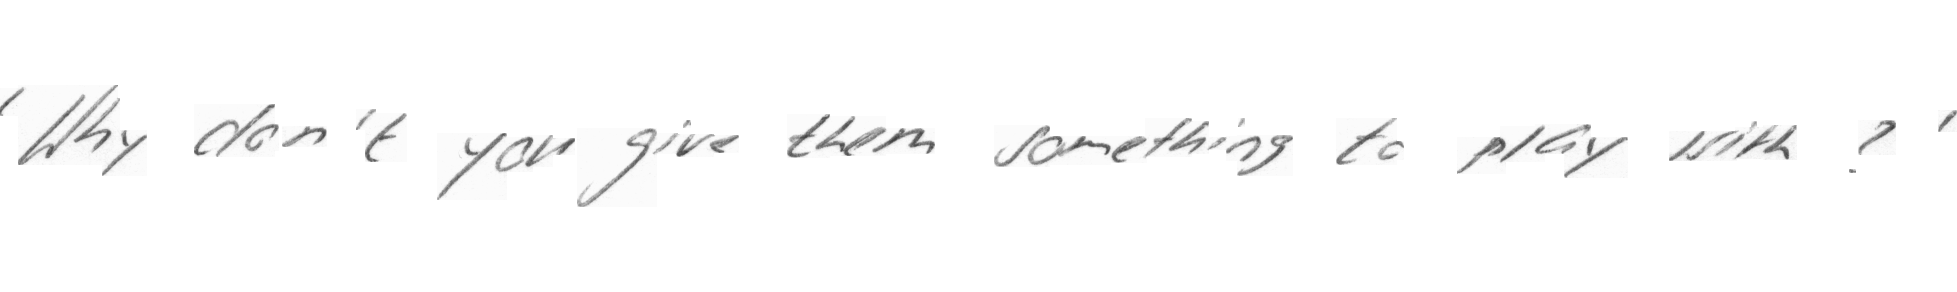 'Why don't you give them something to play with ?'